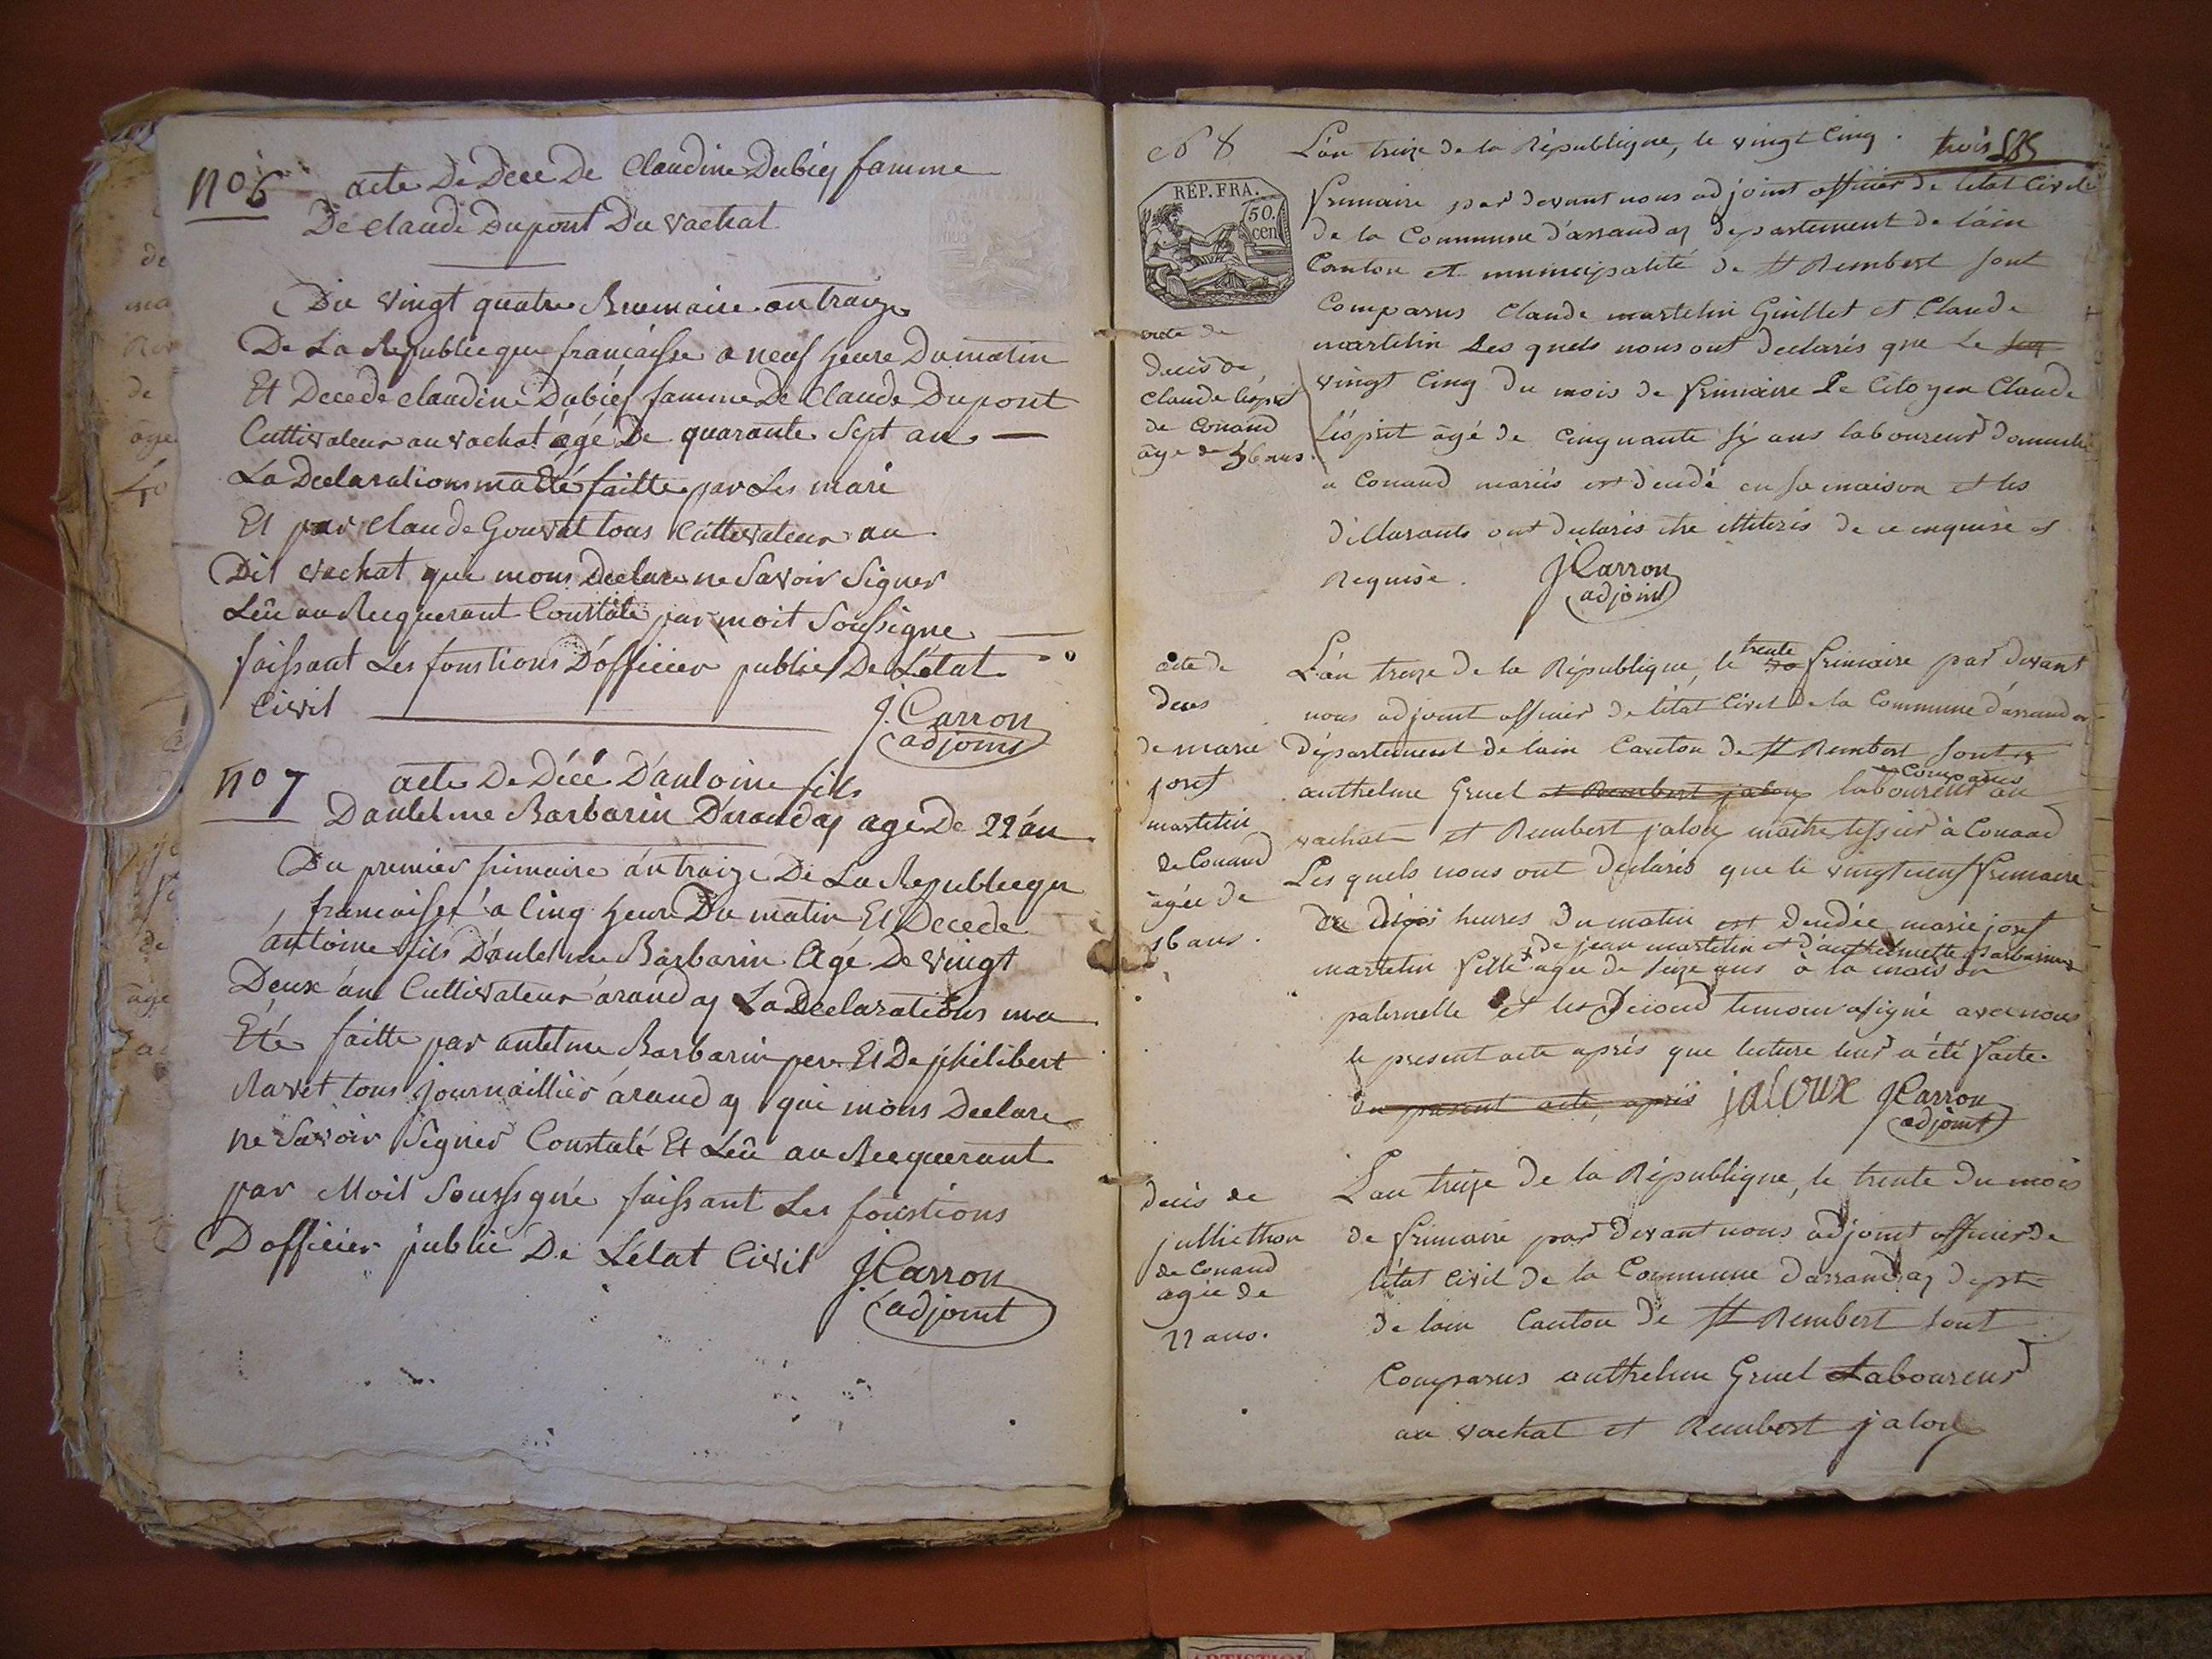 no 6 acte De Dece De Claudine Dubiey famme
De claude Dupont Du vachat
Du vingt quatre Brumaire an traize
De La Republicque françaisse a neuf heure Du matin
Et Decede claudine Dubiey famme De Claude Dupont
Cultivateur au vachat âgé De quarante Sept an
La Declarations ma été faitte par Les mari
Et par claude Gouvat tous Cultivateur au
Dit vachat qui mons Declare ne Savoir Signer
Leû au Recquerant Constaté par moit Soussigne
faissant Les fonstions D'officier public De L'état
Civil
J. Carron
adjoint
no 7 acte De Décé D'antoine fils
D'antelme Barbarin D'arandas age De 22 án
Du premier frimaire án traize De La Republicque
francaisse a Cinq heure Du matin Et Decede
antoine fils D'antelme Barbarin Agé De vingt
Deux án Cultivateur arandas La Declarations ma
Eté faitte par antelme Barbarin per Et De philibert
Ravet tous journaillier arandas qui mons Declare
ne Savoir Signer Constaté Et Leû au Recquerant
par Moit Soussigné faissant Les fonstions
D'officier public De L'état Civil
J Carron
adjoint
trois
No 8
L'an treize de la République, le vingt Cinq
RÉP. FRA.
50.
cen
frimaire par devant nous adjoint officier de l'état Civil
de la Commune d'arrandas département de l'ain
Canton et municipalité de St Rembert sont
Comparus Claude martelin Guillet et Claude
martelin Les quels nous ont declarés que Le
vingt Cinq du mois de frimaire Le Citoyen Claude
Lésprit âgé de Cinquante six ans laboureur domicilié
a Conand mariés est decédé en sa maison et les
déclarants ont declarés être illiterés de ce enquise et
Requise.
J Carron
adjoint
acte de
decès de
claude Lésprit
de Conand
âge de 56 ans
L'an treize de la République, le trente 30 frimaire par devant
nous adjoint officier de l'état Civil de la Commune d'arrandas
département de l'ain Canton de St Rembert sont
Comparus
anthelme Gruel et Rembert jaloux laboureur au
vachat et Rembert jaloux maître tissier à Conand
Les quels nous ont declarés que le vingt neuf frimaire
heures du matin est decédée marie josef
de jean martelin et d'anthelmette Barbarin
martelin fille agée de seize ans à la maison
paternelle et le second temoin a signé avec nous
le present acte après que lecture leur a été faite.
du present acte, après
jaloux J Carron
adjoint
acte de
deces
de marie
josef
martelin
de Conand
âgée de
16 ans.
L'an treize de la République, le trente du mois
de frimaire par devant nous adjoint officier de
l'état Civil de la Commune d'arrandas depte
de l'ain Canton de St Rembert sont
Comparus anthelme Gruel Laboureur
au vachat et Rembert jaloux
decès de
jullie thon
de Conand
agée de
22 ans.